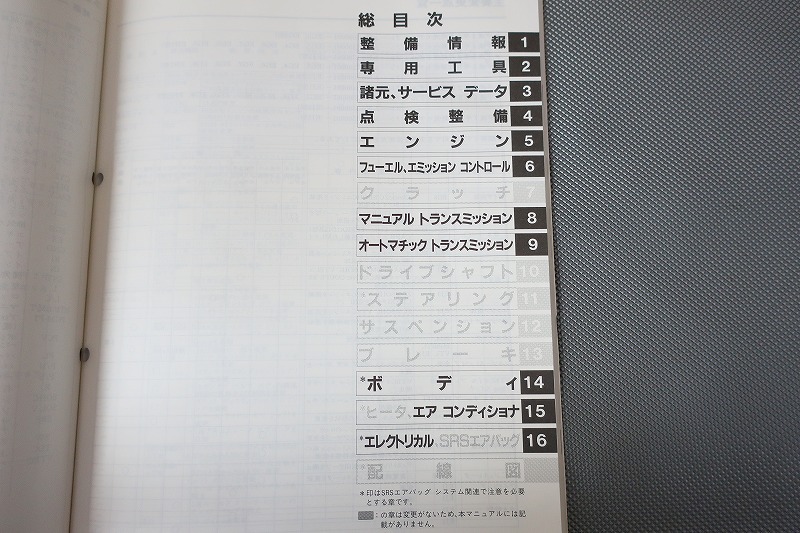 総目次
整備情報 1
専用工具 2
諸元、サービス データ 3
点検整備 4
エンジン 5
フューエル、エミッション コントロール 6
クラッチ 7
マニュアル トランスミッション 8
オートマチック トランスミッション 9
ドライブシャフト 10
*ステアリング 11
サスペンション 12
ブレーキ 13
*ボディ 14
*ヒータ、エア コンディショナ 15
*エレクトリカル、SRSエアバッグ 16
*配線図
*印はSRSエアバッグ システム関連で注意を必要
とする章です。
:の章は変更がないため、本マニュアルには記
載がありません。